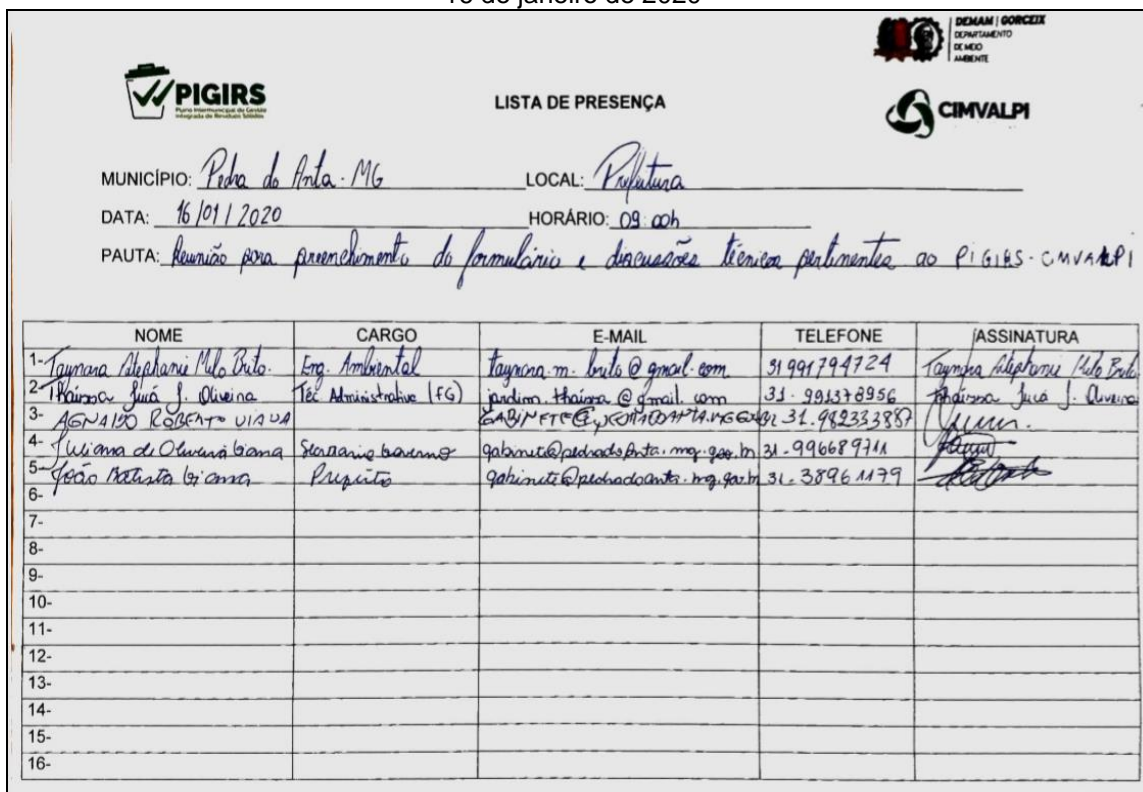 16 de janeiro de 2020
DEMAM | GORCEIX
DEPARTAMENTO
DE MEIO
AMBIENTE
PIGIRS
Plano Intermunicipal de Gestão
Integrada de Resíduos Sólidos
LISTA DE PRESENÇA
CIMVALPI
MUNICÍPIO: Pedra do Anta - MG LOCAL: Prefeitura
DATA: 16/01/2020 HORÁRIO: 09:00h
PAUTA: Reunião para preenchimento do formulário e discussões técnicas pertinentes ao PIGIRS-CIMVALPI
NOME CARGO E-MAIL TELEFONE ASSINATURA
1- Taynara Stephanie Melo Brito. Eng. Ambiental taynara.m.brito@gmail.com 31 991794724 Taynara Stephanie Melo Brito
2- Thaíssa Jucá J. Oliveira Téc Administrativo (FG) jardim.thaissa@gmail.com 31-991378956 Thaíssa Jucá J. Oliveira
3- AGNALDO ROBERTO VIANA 31-982333887
4- Juliana de Oliveira Viana Secretaria Governo gabinete@pedradoanta.mg.gov.br 31-996689711
5- João Batista Viana Prefeito gabinete@pedradoanta.mg.gov.br 31-38961179
6-
7-
8-
9-
10-
11-
12-
13-
14-
15-
16-